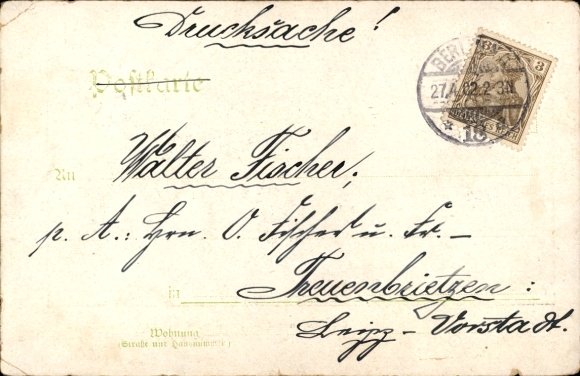 Drucksache!
Postkarte
BERLIN
3
27.4.02. 2-3N.
* 18
An Walter Fischer,
p. A.: Hrn. O. Fischer u. Fr. –
in Treuenbrietzen:
Leipz – Vorstadt.
Wohnung
(Straße und Hausnummer)